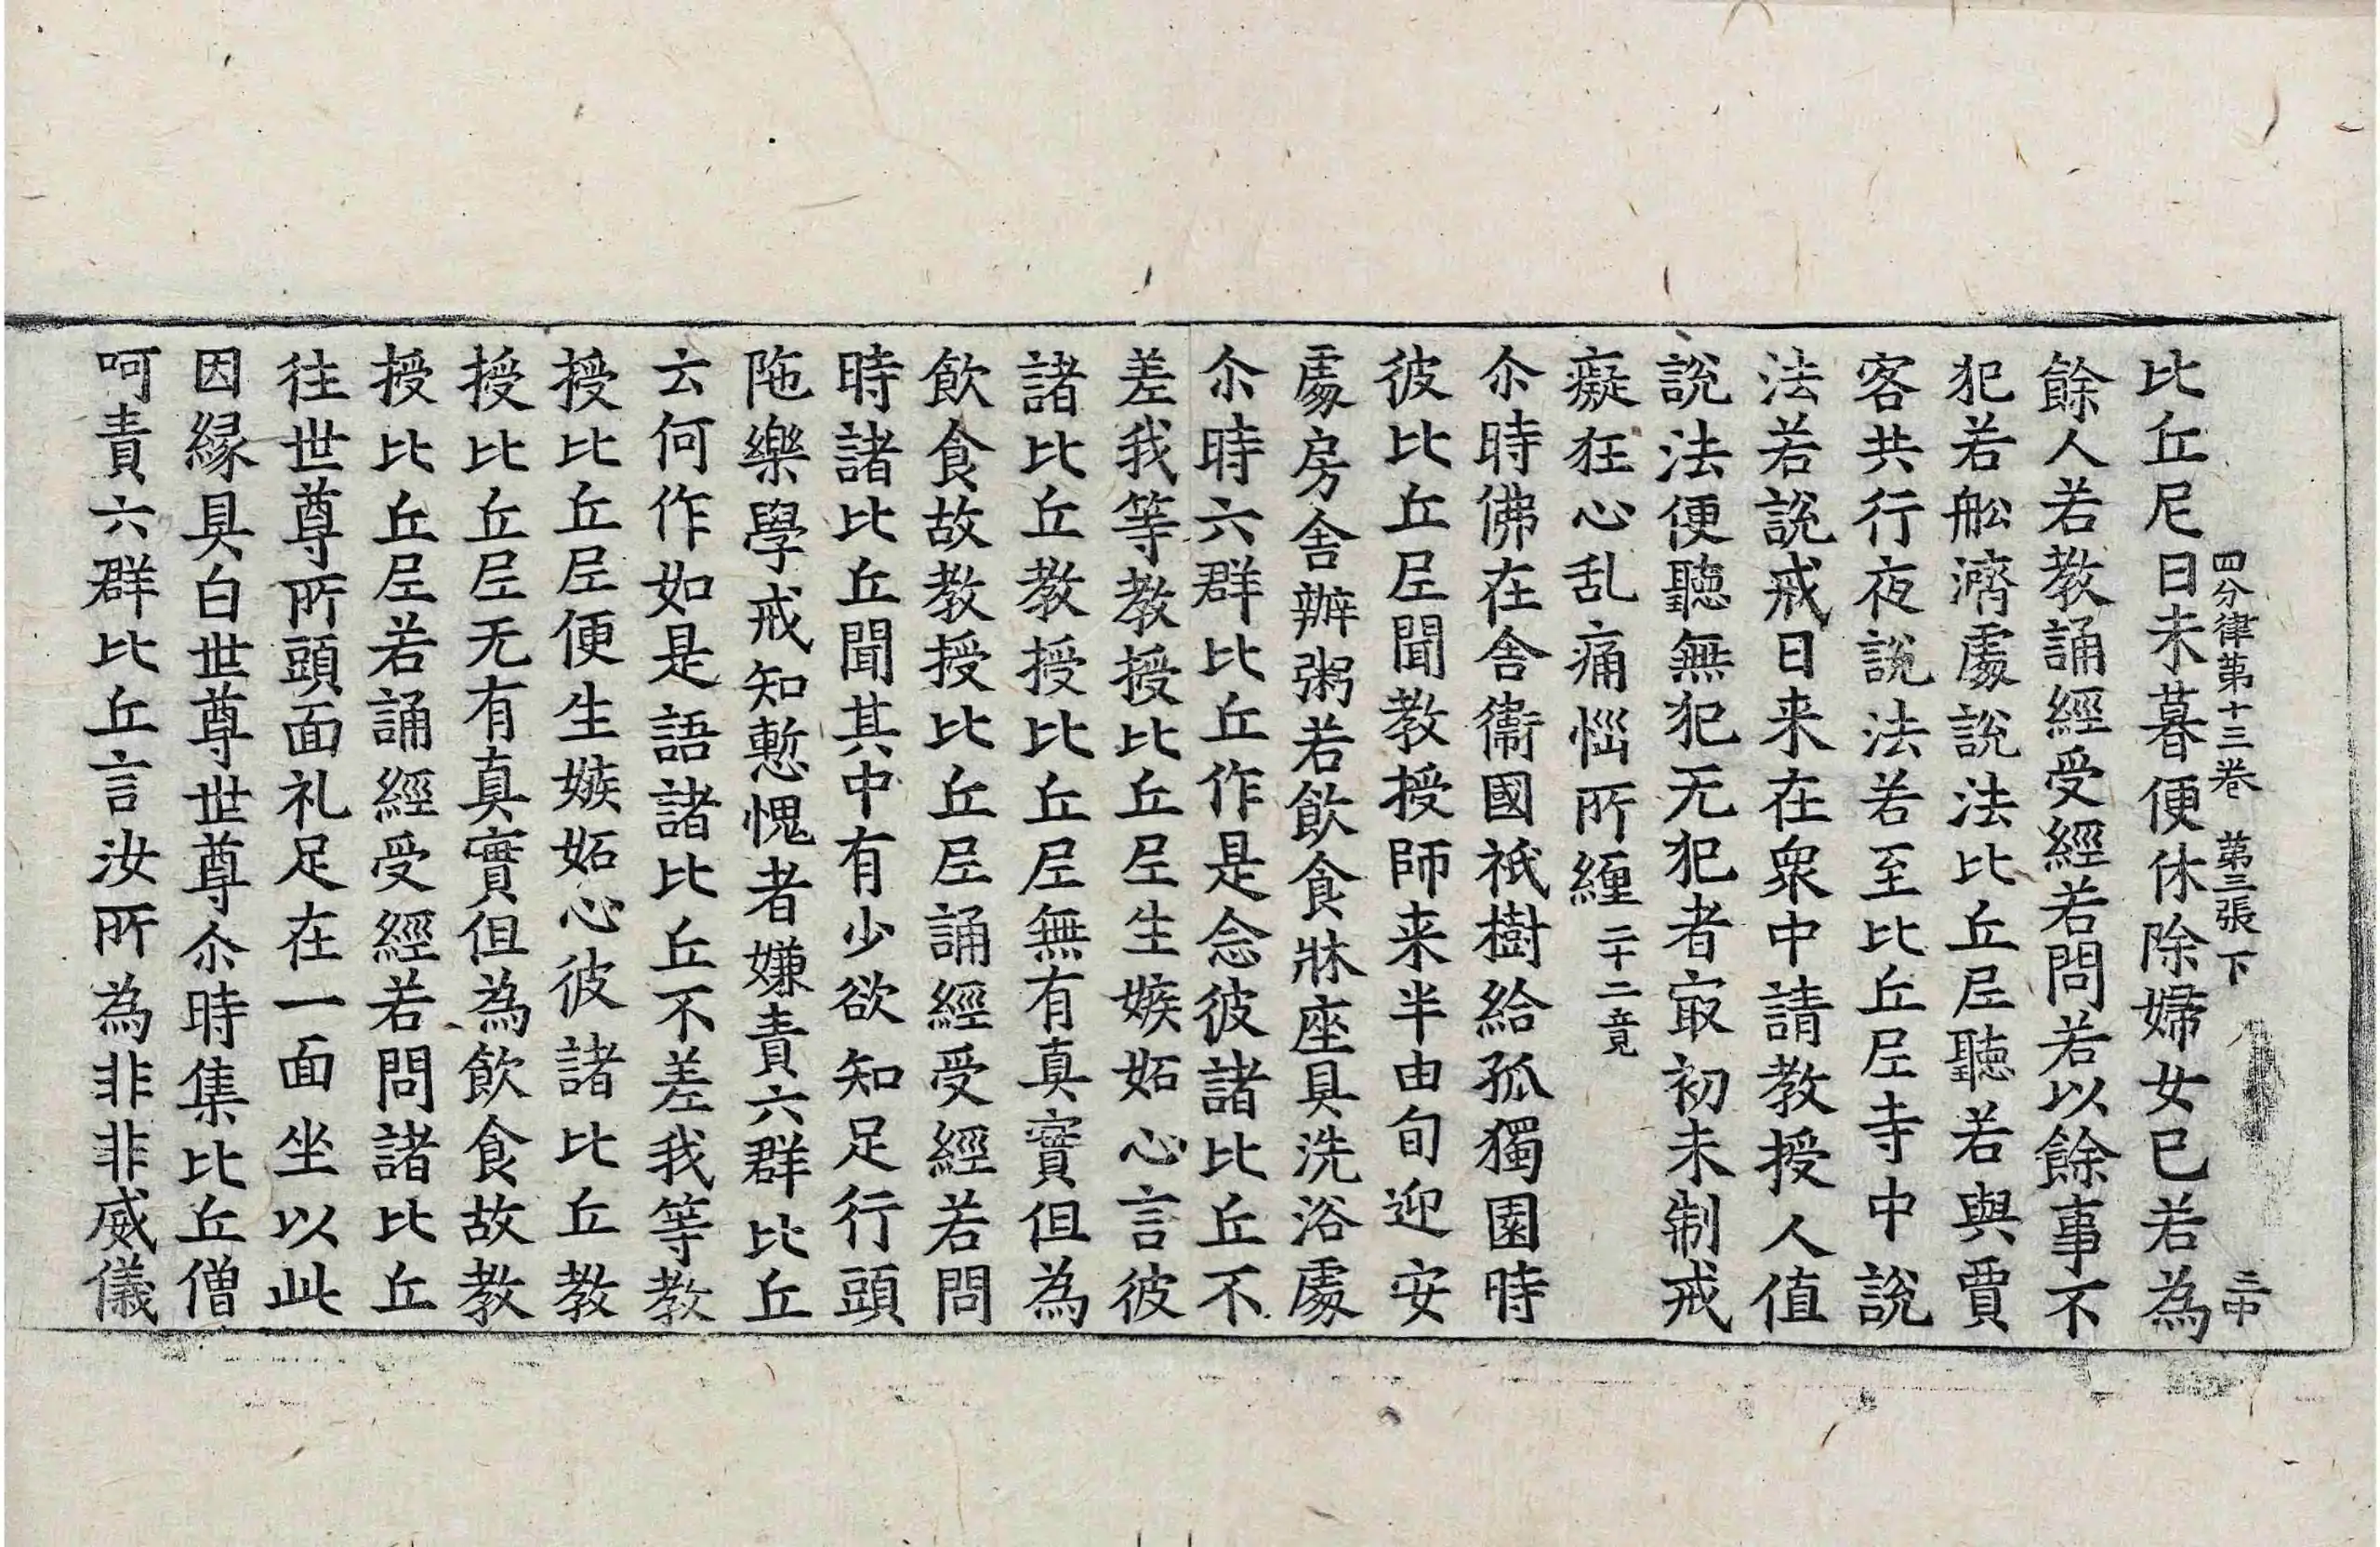 四分律第十三卷 第三張 下 三中
比丘尼日未暮便休除婦女已若為
餘人若教誦經受經若問若以餘事不
犯若舩濟處說法比丘𡰱聽若與賈
客共行夜說法若至比丘𡰱寺中說
法若說戒日来在衆中請教授人值
說法便聽無犯无犯者冣初未制戒
癡狂心乱痛惱所纏二十二竟
尒時佛在舎衞國祇樹給孤獨園時
彼比丘𡰱聞教授師来半由旬迎安
處房舎辦粥若飲食牀座具洗浴處
尒時六群比丘作是念彼諸比丘不
差我等教授比丘𡰱生嫉妬心言彼
諸比丘教授比丘𡰱無有真實但為
飲食故教授比丘𡰱誦經受經若問
時諸比丘聞其中有少欲知足行頭
陁樂學戒知慙愧者嫌責六群比丘
云何作如是語諸比丘不差我等教
授比丘𡰱便生嫉妬心彼諸比丘教
授比丘𡰱无有真實但為飲食故教
授比丘𡰱若誦經受經若問諸比丘
往世尊所頭面礼足在一面坐以此
因縁具白世尊世尊尒時集比丘僧
呵責六群比丘言汝所為非非威儀